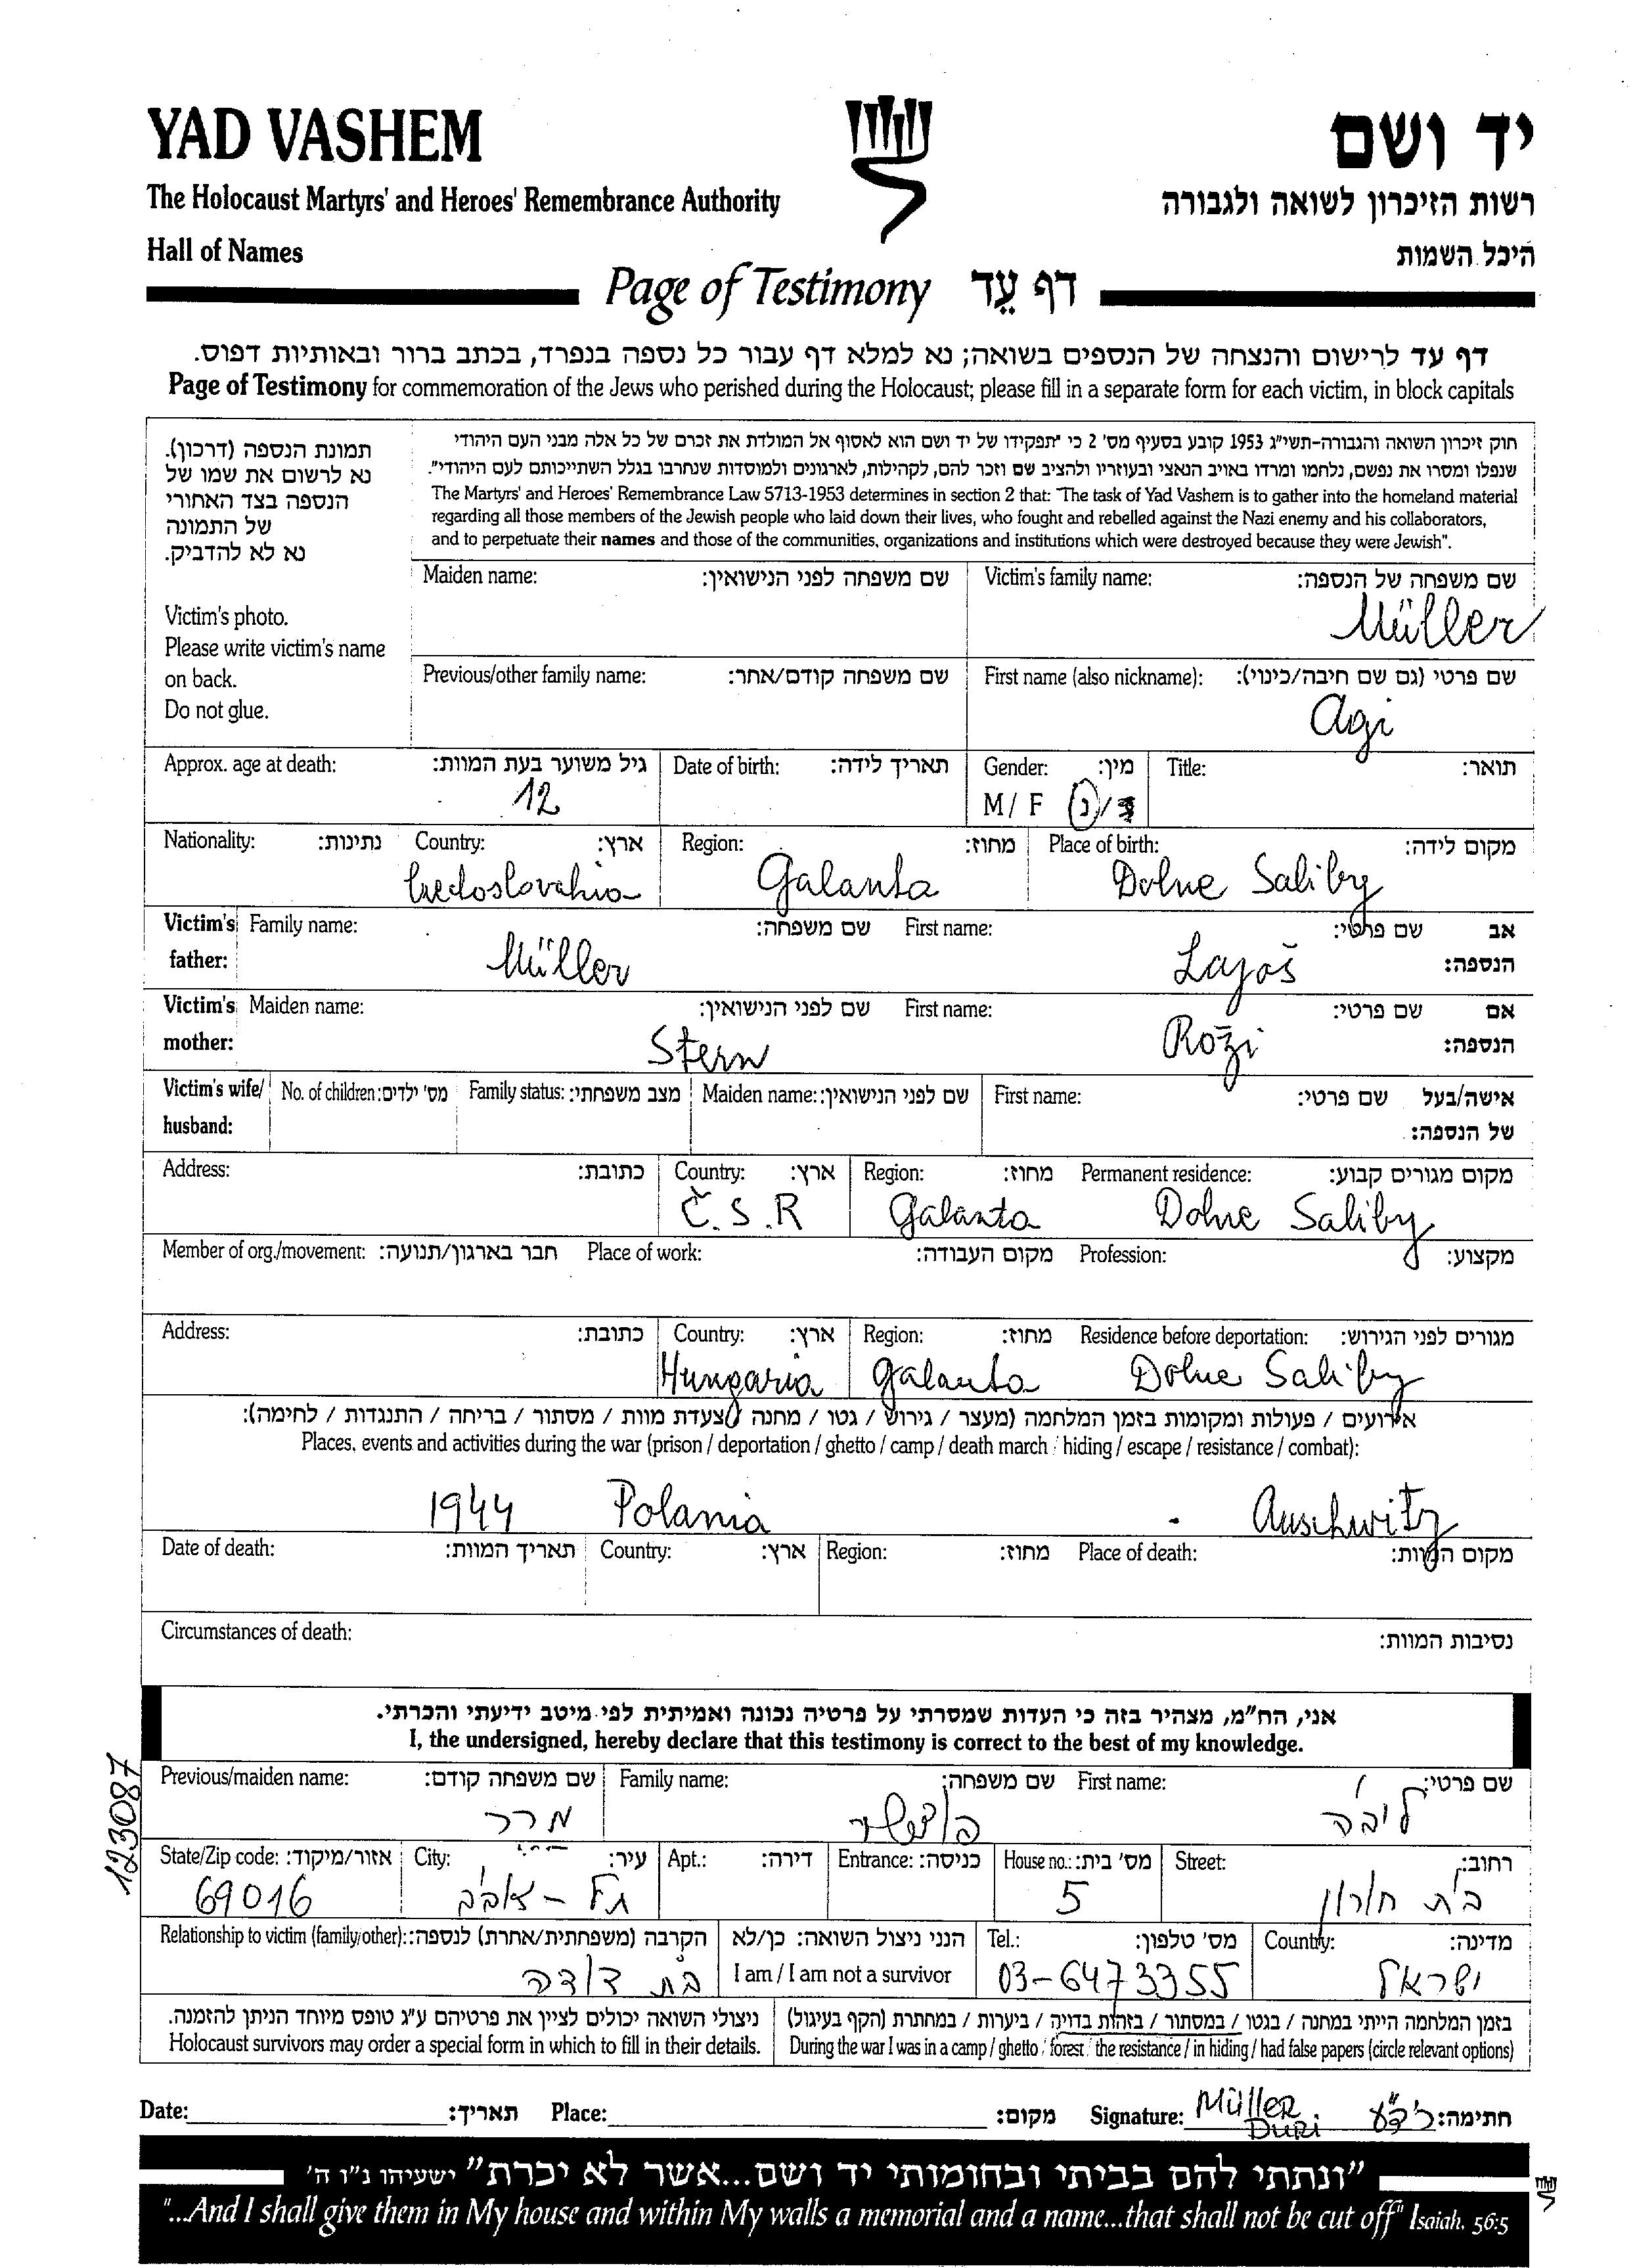 YAD VASHEM
יד ושם
The Holocaust Martyrs' and Heroes' Remembrance Authority
רשות הזיכרון לשואה ולגבורה
Hall of Names
היכל השמות
Page of Testimony דף עֵד
דף עד לרישום והנצחה של הנספים בשואה; נא למלא דף עבור כל נספה בנפרד, בכתב ברור ובאותיות דפוס.
Page of Testimony for commemoration of the Jews who perished during the Holocaust; please fill in a separate form for each victim, in block capitals
תמונת הנספה (דרכון).
נא לרשום את שמו של
הנספה בצד האחורי
של התמונה
נא לא להדביק.
Victim's photo.
Please write victim's name
on back.
Do not glue.
חוק זיכרון השואה והגבורה-תשי"ג 1953 קובע בסעיף מס' 2 כי "תפקידו של יד ושם הוא לאסוף אל המולדת את זכרם של כל אלה מבני העם היהודי
שנפלו ומסרו את נפשם, נלחמו ומרדו באויב הנאצי ובעוזריו ולהציב שם וזכר להם, לקהילות, לארגונים ולמוסדות שנחרבו בגלל השתייכותם לעם היהודי".
The Martyrs' and Heroes' Remembrance Law 5713-1953 determines in section 2 that: "The task of Yad Vashem is to gather into the homeland material
regarding all those members of the Jewish people who laid down their lives, who fought and rebelled against the Nazi enemy and his collaborators,
and to perpetuate their names and those of the communities, organizations and institutions which were destroyed because they were Jewish".
Maiden name: שם משפחה לפני הנישואין: Victim's family name: שם משפחה של הנספה:
Müller
Previous/other family name: שם משפחה קודם/אחר: First name (also nickname): שם פרטי (גם שם חיבה/כינוי):
Agi
Approx. age at death: גיל משוער בעת המוות: Date of birth: תאריך לידה: Gender: מין: Title: תואר:
12 M / F נ /
Nationality: נתינות: Country: ארץ: Region: מחוז: Place of birth: מקום לידה:
Galanta Dolne Saliby
Victim's father: Family name: שם משפחה: First name: שם פרטי: אב הנספה:
Müller Lajoš
Victim's mother: Maiden name: שם לפני הנישואין: First name: שם פרטי: אם הנספה:
Stern Roži
Victim's wife/ husband: No. of children: מס' ילדים: Family status: מצב משפחתי: Maiden name: שם לפני הנישואין: First name: שם פרטי: אישה/בעל של הנספה:
Address: כתובת: Country: ארץ: Region: מחוז: Permanent residence: מקום מגורים קבוע:
Č.S.R Galanta Dolne Saliby
Member of org./movement: חבר בארגון/תנועה: Place of work: מקום העבודה: Profession: מקצוע:
Address: כתובת: Country: ארץ: Region: מחוז: Residence before deportation: מגורים לפני הגירוש:
Hungaria Galanta Dolne Saliby
אירועים / פעולות ומקומות בזמן המלחמה (מעצר / גירוש / גטו / מחנה / צעדת מוות / מסתור / בריחה / התנגדות / לחימה):
Places, events and activities during the war (prison / deportation / ghetto / camp / death march / hiding / escape / resistance / combat):
1944 Polania - Auschwitz
Date of death: תאריך המוות: Country: ארץ: Region: מחוז: Place of death: מקום המוות:
Circumstances of death: נסיבות המוות:
אני, הח"מ, מצהיר בזה כי העדות שמסרתי על פרטיה נכונה ואמיתית לפי מיטב ידיעתי והכרתי.
I, the undersigned, hereby declare that this testimony is correct to the best of my knowledge.
123087
Previous/maiden name: שם משפחה קודם: Family name: שם משפחה: First name: שם פרטי:
State/Zip code: אזור/מיקוד: City: עיר: Apt.: דירה: Entrance: כניסה: House no.: מס' בית: Street: רחוב:
69016 תל-אביב 5 בית חורון
Relationship to victim (family/other): הקרבה (משפחתית/אחרת) לנספה: הנני ניצול השואה: כן/לא Tel.: מס' טלפון: Country: מדינה:
I am / I am not a survivor
בת דודה 03-6473355 ישראל
ניצולי השואה יכולים לציין את פרטיהם ע"ג טופס מיוחד הניתן להזמנה.
Holocaust survivors may order a special form in which to fill in their details.
בזמן המלחמה הייתי במחנה / בגטו / במסתור / בזהות בדויה / ביערות / במחתרת (הקף בעיגול)
During the war I was in a camp / ghetto / forest / the resistance / in hiding / had false papers (circle relevant options)
Date: תאריך: Place: מקום: Signature: Müller Duri חתימה:
"ונתתי להם בביתי ובחומותי יד ושם...אשר לא יכרת" ישעיהו נ"ו ה'
"...And I shall give them in My house and within My walls a memorial and a name...that shall not be cut off" Isaiah, 56:5